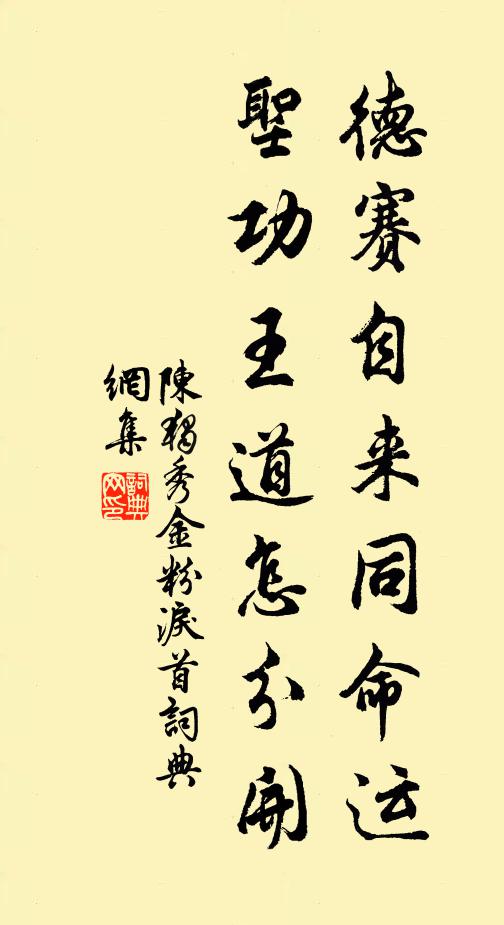 德賽自来同命运
聖功王道怎分開
陳獨秀金粉淚首詞典
網集
詞典
网印